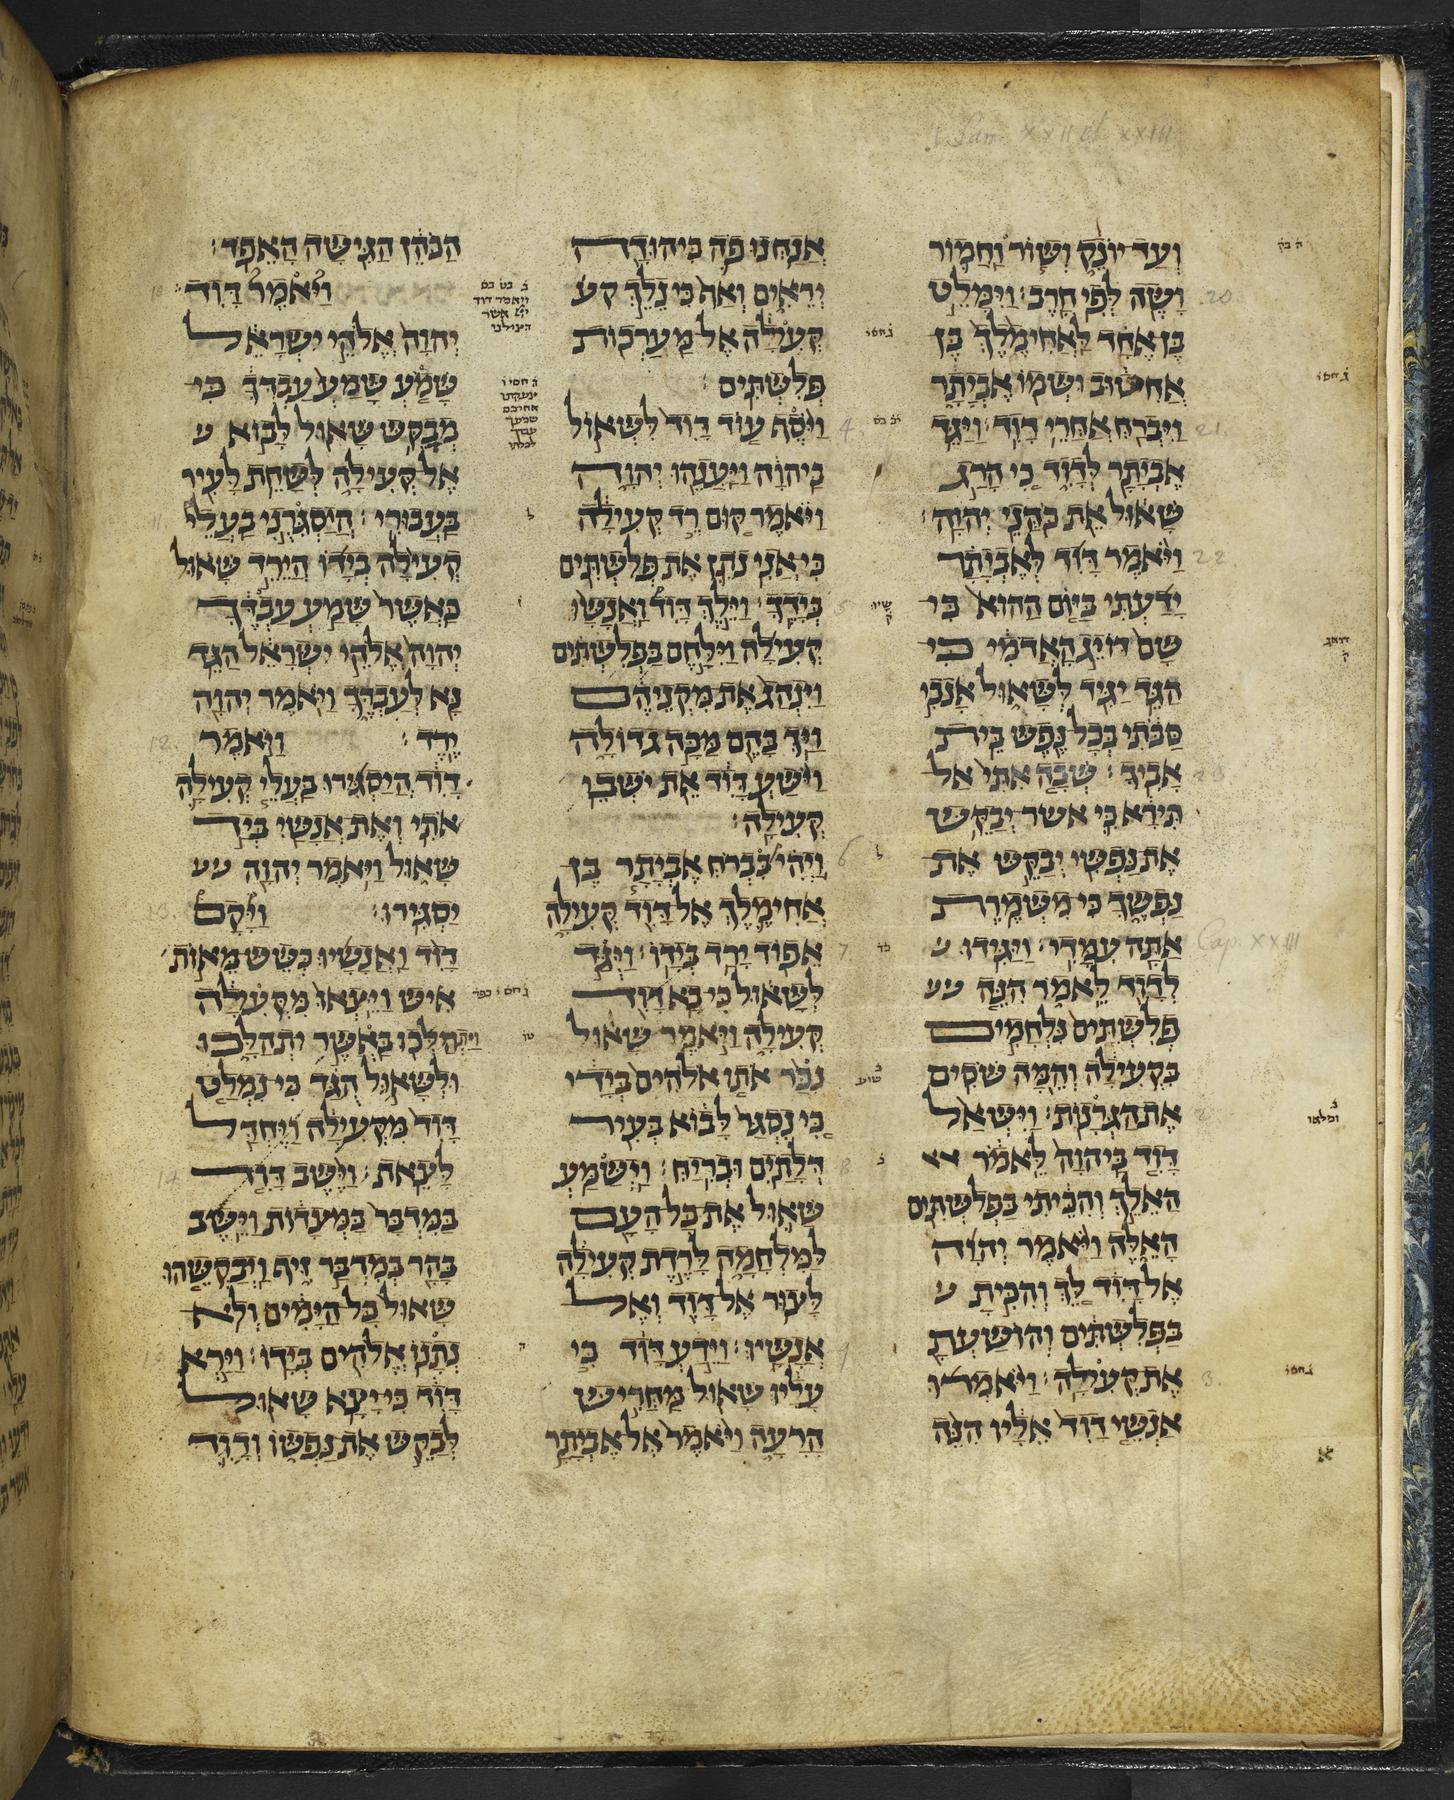 I Sam XXII et XXIII
ועד יונק ושור וחמור
ושה לפי חרב׃ וימלט
20
בן אחד לאחימלך בן
אחטוב ושמו אביתר
ויברח אחרי דוד׃ ויגד
21.
אביתר לדוד כי הרג
שאול את כהני יהוה׃
ויאמר דוד לאביתר
22
ידעתי ביום ההוא כי
שם דויג האדמי כי
הגד יגיד לשאול אנכי
סבתי בכל נפש בית
אביך׃ שבה אתי אל
23
תירא כי אשר יבקש
את נפשי יבקש את
נפשך כי משמרת
אתה עמדי׃ ויגידו
Cap. XXIII
לדוד לאמר הנה
פלשתים נלחמים
בקעילה והמה שסים
את הגרנות׃ וישאל
2
דוד ביהוה לאמר
האלך והכיתי בפלשתים
האלה ויאמר יהוה
אל דוד לך והכית
בפלשתים והושעת
את קעילה׃ ויאמרו
3.
אנשי דוד אליו הנה
אנחנו פה ביהודה
יראים ואף כי נלך קע
קעילה אל מערכות
פלשתים׃
ויסף עוד דוד לשאול
4
ביהוה ויענהו יהוה
ויאמר קום רד קעילה
כי אני נתן את פלשתים
בידך׃ וילך דוד ואנשו
5
קעילה וילחם בפלשתים
וינהג את מקניהם
ויך בהם מכה גדולה
וישע דוד את ישבי
קעילה׃
ויהי בברח אביתר בן
6
אחימלך אל דוד קעילה
אפוד ירד בידו׃ ויגד
7
לשאול כי בא דוד
קעילה ויאמר שאול
נכר אתו אלהים בידי
כי נסגר לבוא בעיר
דלתים ובריח׃ וישמע
8
שאול את כל העם
למלחמה לרדת קעילה
לצור אל דוד ואל
אנשיו׃ וידע דוד כי
9
עליו שאול מחריש
הרעה ויאמר אל אביתר
הכהן הגישה האפד׃
ויאמר דוד
10
יהוה אלהי ישראל
שמע שמע עבדך כי
מבקש שאול לבוא
אל קעילה לשחת לעיר
בעבורי׃ היסגרני בעלי
11.
קעילה בידו הירד שאול
כאשר שמע עבדך
יהוה אלהי ישראל הגד
נא לעבדך ויאמר יהוה
ירד׃ ויאמר
12.
דוד היסגירו בעלי קעילה
אתי ואת אנשי ביד
שאול ויאמר יהוה
יסגירו׃ ויקם
13.
דוד ואנשיו כשש מאות
איש ויצאו מקעלה
ויתהלכו באשר יתהלכו
ולשאול הגד כי נמלט
דוד מקעילה ויחדל
לצאת׃ וישב דוד
14
במדבר במצדות וישב
בהר במדבר זיף ויבקשהו
שאול כל הימים ולא
נתנו אלהים בידו׃ וירא
15
דוד כי יצא שאול
לבקש את נפשו ודוד